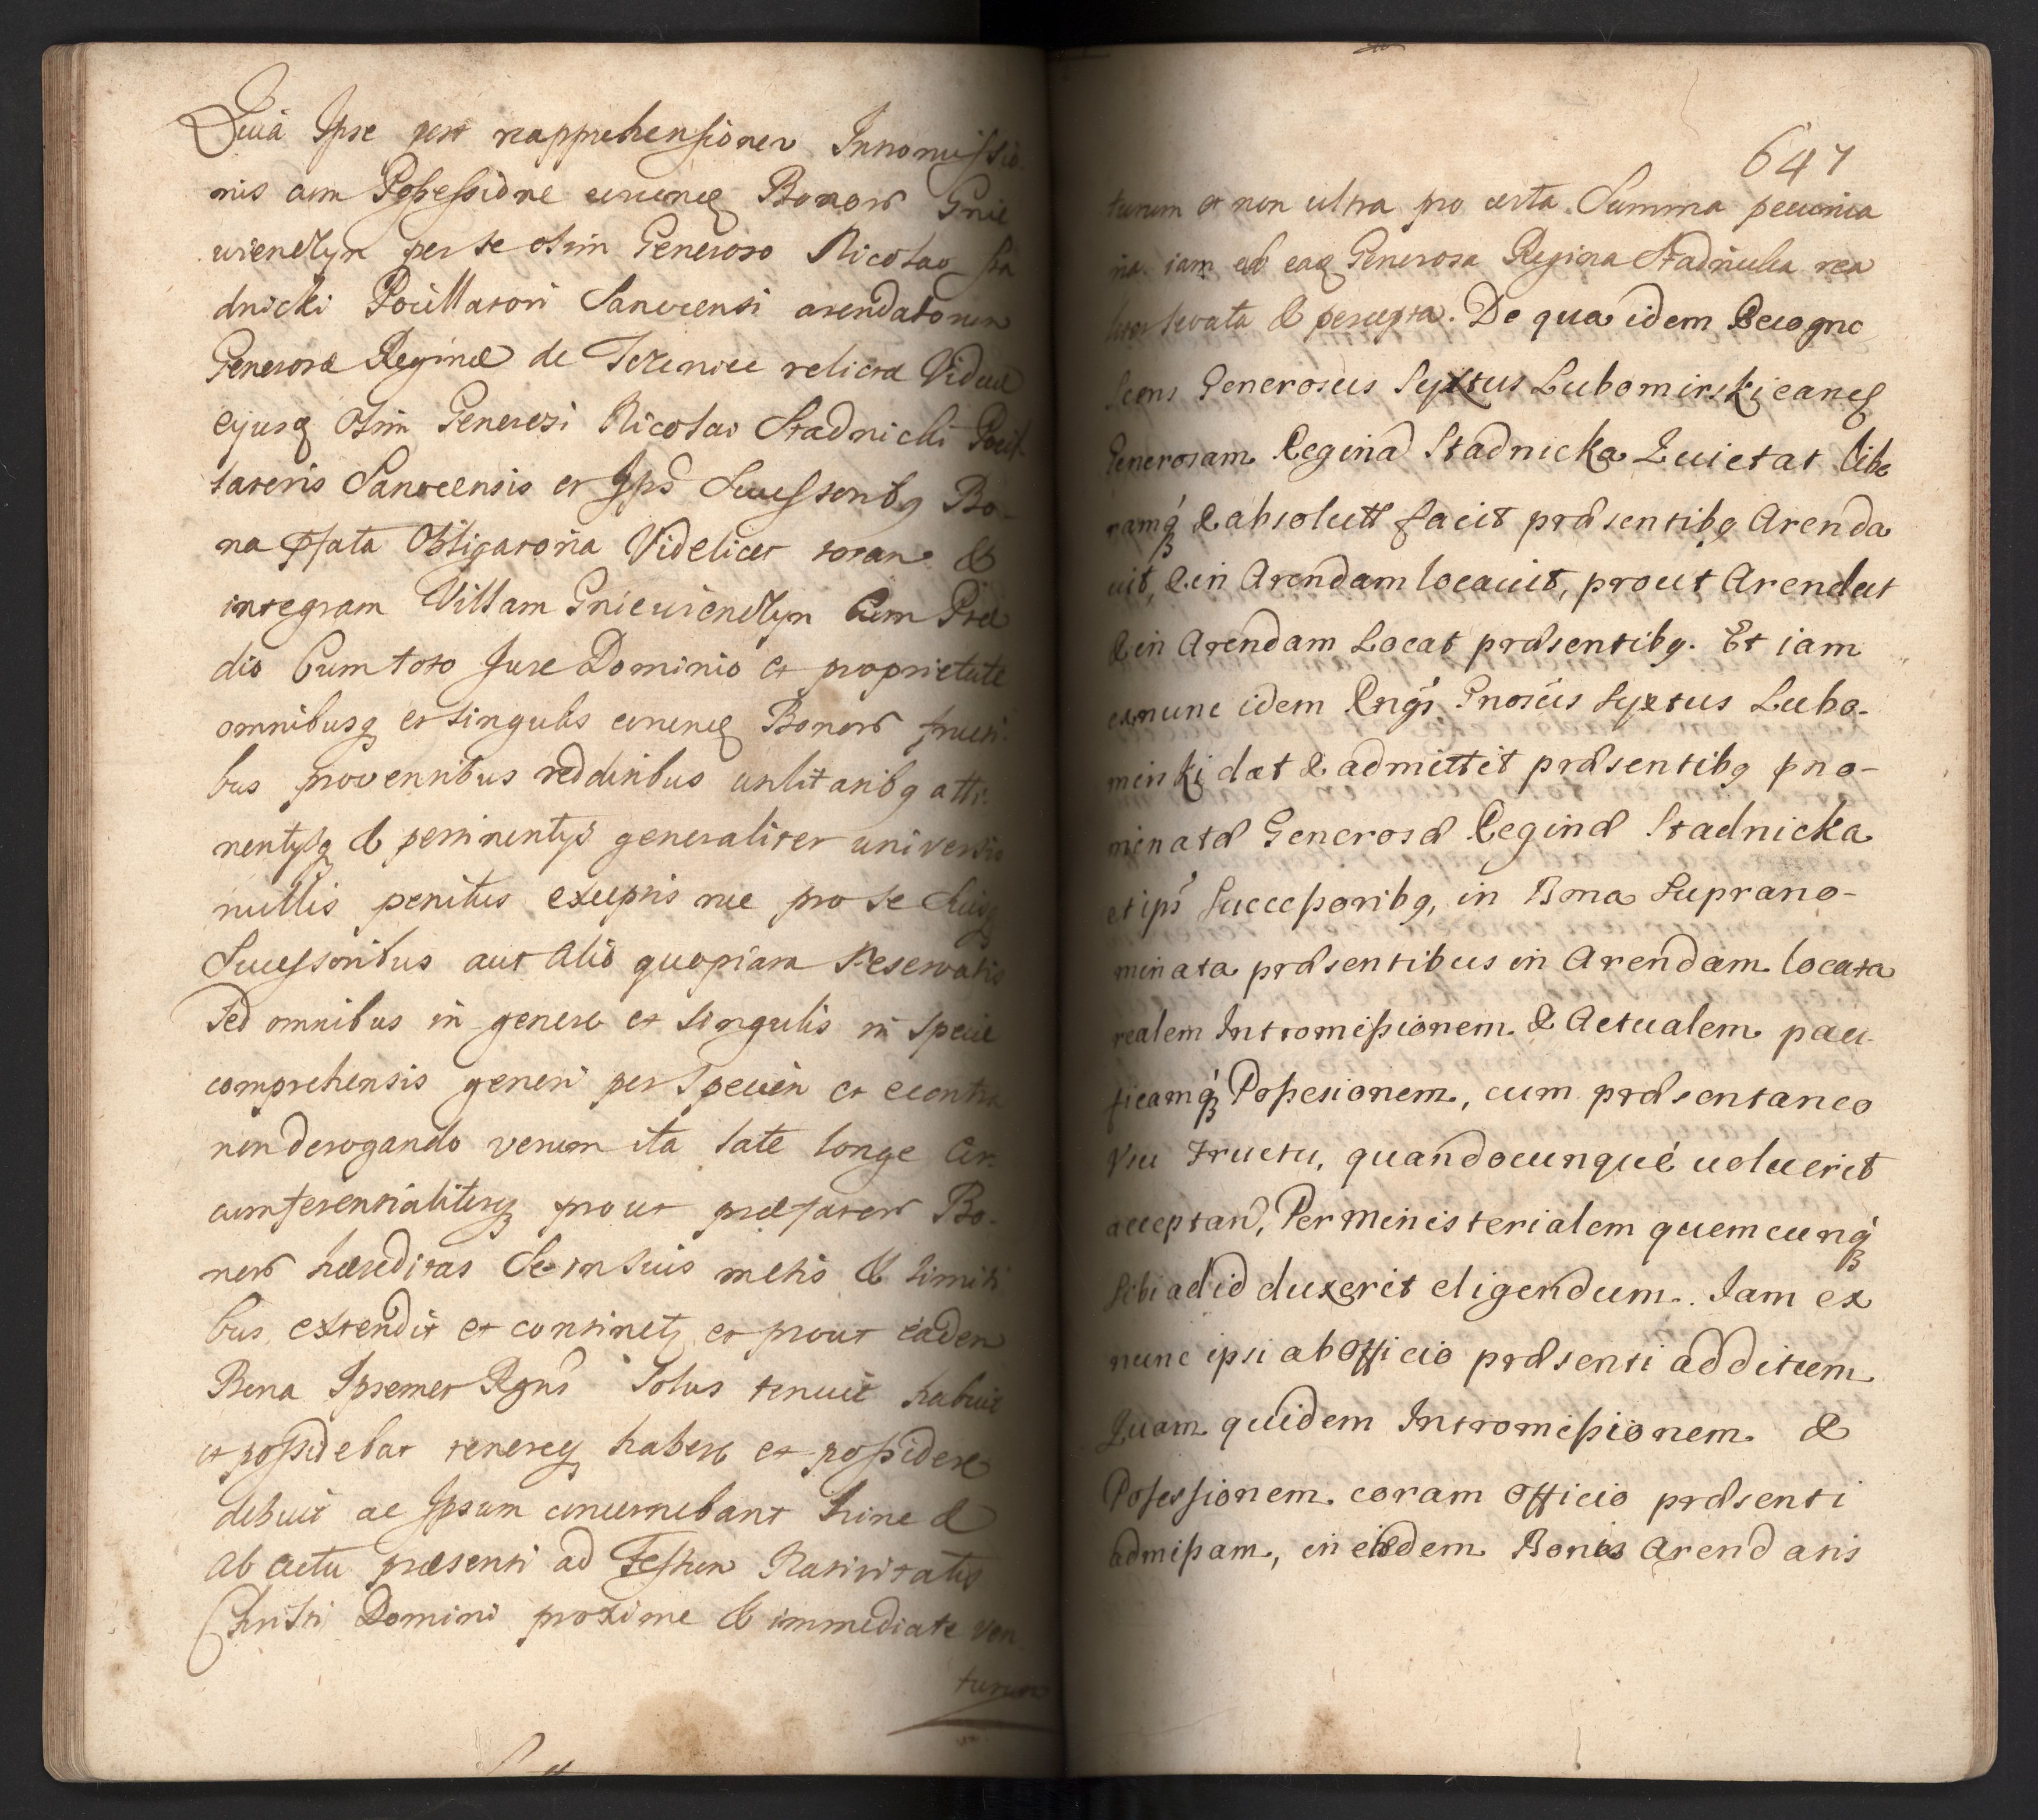 Quia Ipse post reapprehensionem Intromissio
nis cum Possessione eorumq Bonorū Gnie
wiendlyn per se olim Generoso Nicolao Sta
dnicki Pocillatori Sanocensi arendatorum
Generosæ Reginæ de relictæ Viduæ
Ejusq Olim Generosi Nicolai Stadnicki Pocil-
latoris Sanocensis et Ips Successoribq Bo-
na pfata Obligatoria Videlicet totam &
integram Villam Gniewiendlyn Cum Præ
dio Cum toto Jure Dominio et proprietate
omnibusq et singulis eorumq Bonorū fructi-
bus proventibus redditibus utilitatibq atti-
nentysq & pertinentys generaliter universis
nullis penitus exceptis nec pro se suisq
Successoribus aut alio quopiam Reservatis
Sed omnibus in genere et singulis in specie
comprehensis generi per Speciem et econtra
non derogando verum ita late longe Cir-
cumferentialiterq prout præfatorū Bo-
norū hæreditas Se in suis metis & limiti
bus extendit et continetq et prout eadem
Bona Ipsemet Rgns Solus tenuit habuit
et possidebat tenereq habere et possidere
debuit ac Ipsum concernebant hinc &
ab actu præsenti ad Festum Nativitatis
Christi Domini proxime & immediate ven
turum
647
turum et non ultra pro certa Summa pecunia
ria iam ab eaq Generosa Regina Stadnicka rea
liter levata & percepta. De qua idem Recogno
scens Generosus Syxtus Lubomirski eanq
Generosam Reginā Stadnicka Quietat libe
ramq́ & absolutā facit præsentibq Arenda
uit, & in Arendam locauit, prout Arendat
& in Arendam Locat præsentibq. Et iam
exnunc idem Rngs Gnosus Syxtus Lubo-
mirski dat & admittit præsentibq pno-
minatæ Generosæ Reginæ Stadnicka
et ips Successoribq, in Bona Suprano-
minata præsentibus in Arendam locata
realem Intromissionem & Actualem paci-
ficamq́ Possesionem, cum præsentaneo
Vsu Fructu, quandocunqué uoluerit
acceptan, Per Ministerialem quemcunq́
sibi ad id duxerit eligendum. Iam ex
nunc ipsi ab Officio præsenti additum
Quam quidem Intromissionem &
Posessionem coram Officio præsenti
admissam, in eisdem Bonis Arendatis